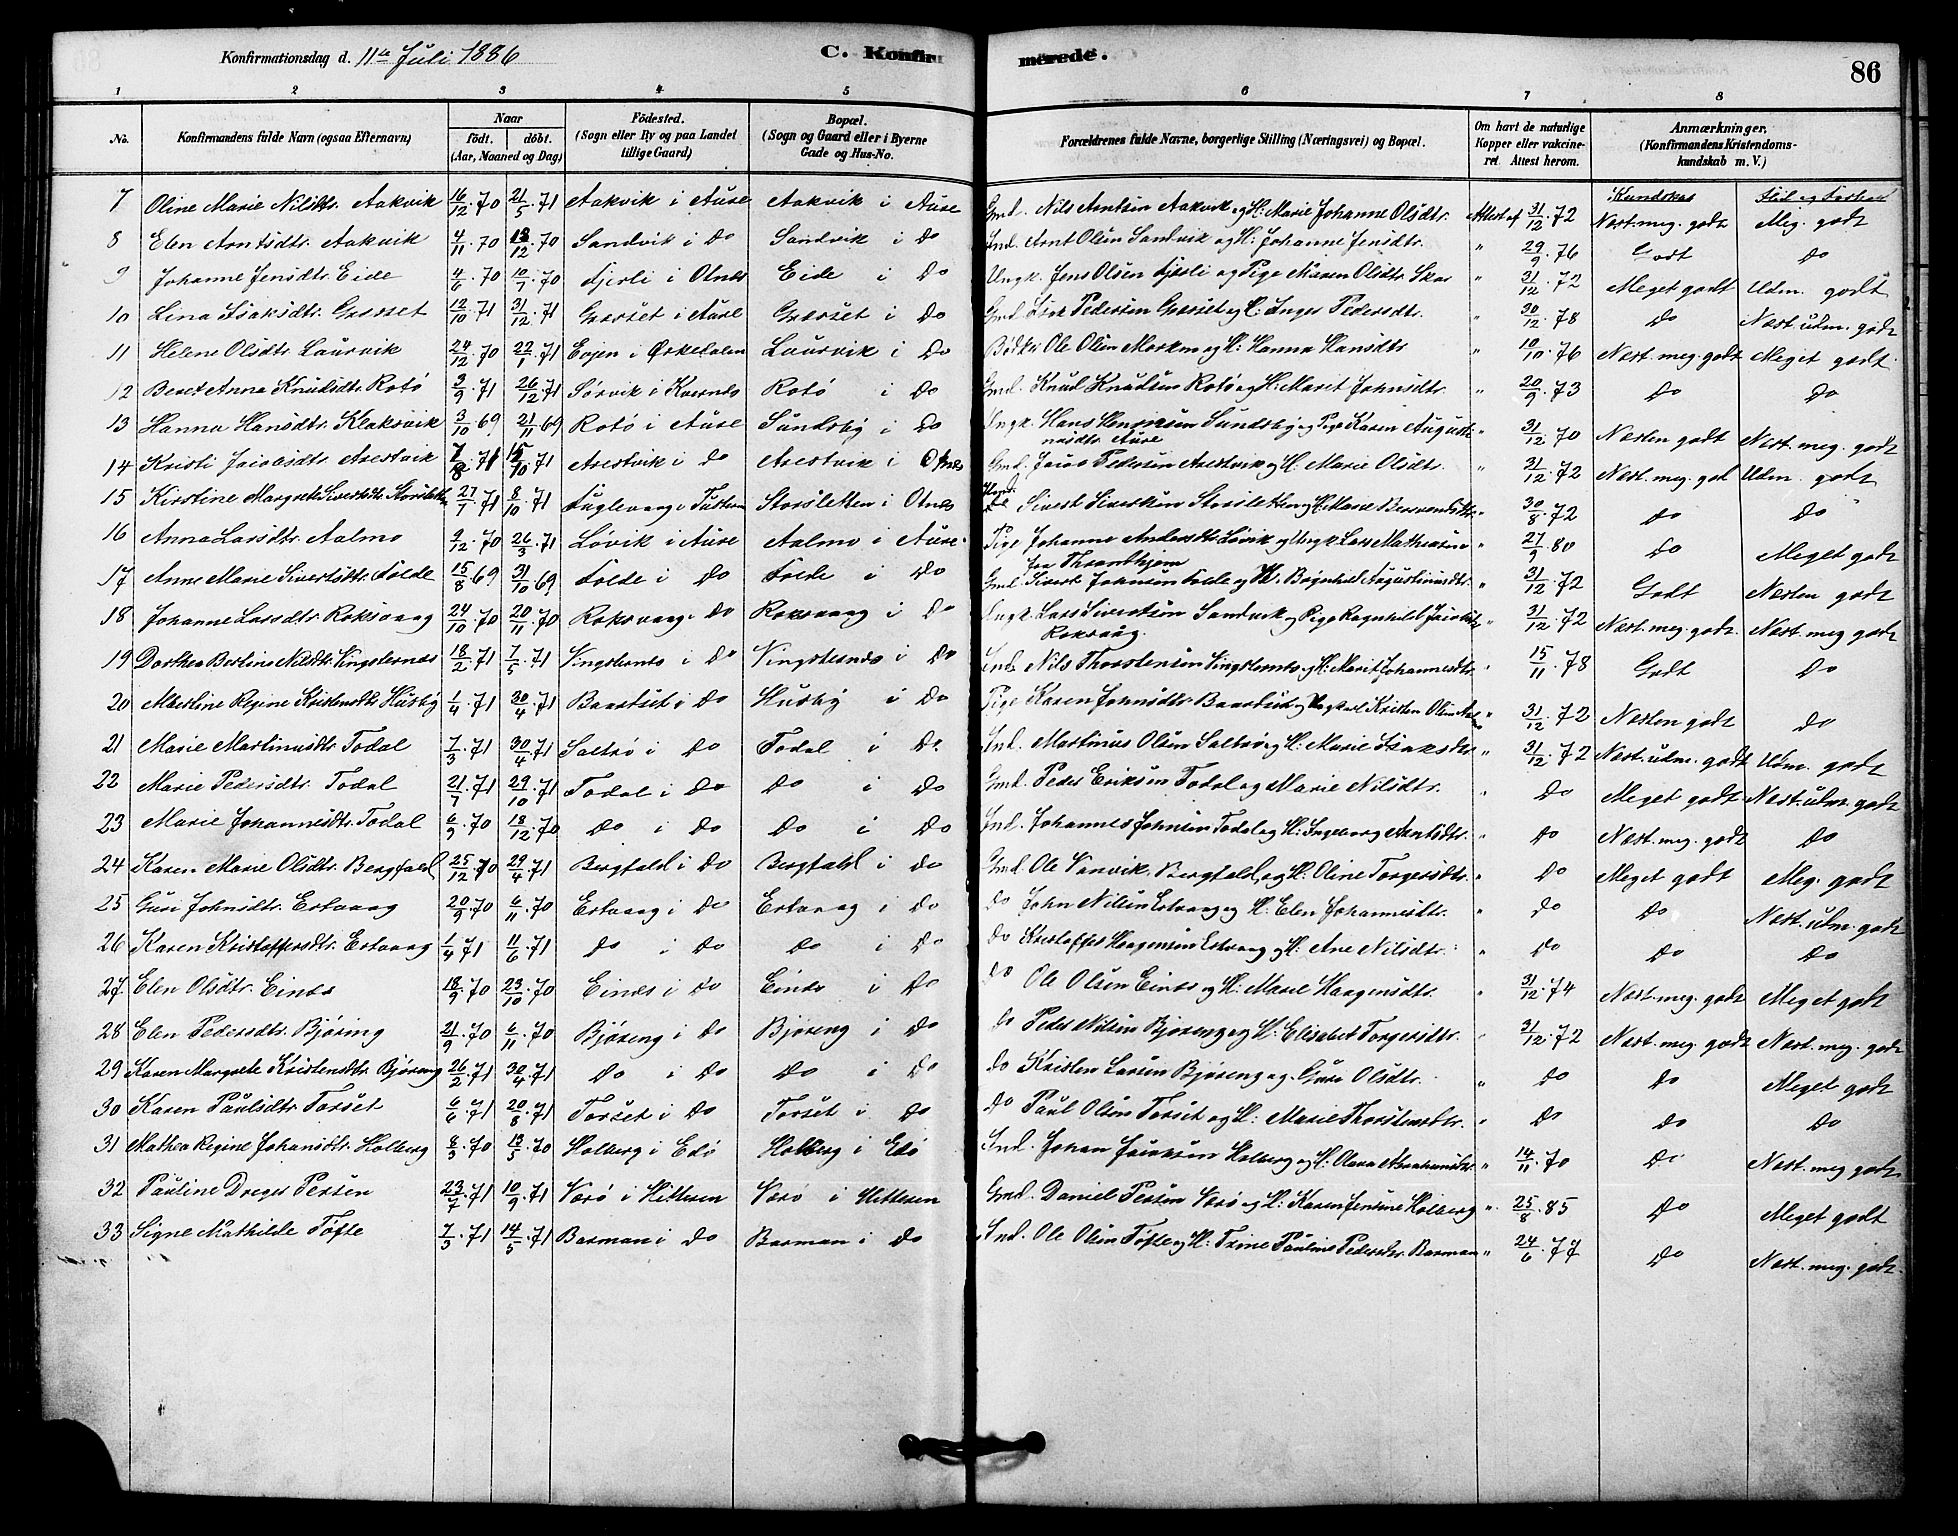 Konfirmationsdag d. 11te Juli 1886 C. Konfirmerede. 86
1 2 3 4 5 6 7 8
No. Konfirmandens fulde Navn (ogsaa Efternavn) Naar født. døbt. (Aar, Maaned og Dag) Fødested. (Sogn eller By og paa Landet tillige Gaard) Bopæl. (Sogn og Gaard eller i Byerne Gade og Hus-No. Forældrenes fulde Navne, borgerlige Stilling (Næringsvei) og Bopæl. Om havt de naturlige Kopper eller vakcineret. Attest herom. Anmærkninger. (Konfirmandens Kristendomskundskab m. V.)
Kundskab Flid og
7 Oline Marie Nilsdtr. Aakvik 16/12.70 21/5.71 Aakvik i Aure Aakvik i Aure Gmd. Nils Arntsen Aakvik og H: Marie Johanne Olsdtr. Attest af 31/12.72 Næst. meg. godt Meg. godt
8 Elen Arntsdtr. Aakvik 4/11.70 18/12.70 Sandvik i Do Sandvik i Do Ind. Arnt Olsen Sandvik og H: Johanne Jensdtr. " 29/9.76 Godt Do
9 Johanne Jensdtr. Eide 4/6.70 10/7.70 Fjerli i Otnes Eide i Do Ungk. Jens Olsen Fjerli og Pige Maren Olsdtr. Skar " 31/12.72 Meget godt Udm. godt
10 Lena Isaksdtr. Græsset 12/10.71 31/12.71 Græsset i Aure Græsset i Do Gmd. Isak Pedersen Græset og H: Inger Pedersdtr. " 30/12.78 Do Næst. udm. godt
11 Helene Olsdtr. Laurvik 24/12.70 22/1.71 Evjen i Ørkedalen Laurvik i Do Bødker Ole Olsen Morken og H: Hanna Hansdtr " 10/10.76 Næst. meg. godt Meget godt.
12 Beret Anna Knudsdtr. Rotø 3/9.71 26/12.71 Sørvik i Kvernes Rotø i Do Gmd. Knud Knudsen Rotø og H: Marit Johnsdtr. " 20/9.73 Do Do
13 Hanna Hansdtr. Klaksvik 3/10.69 21/11.69 Rotø i Aure Sundsby i Do Ungk. Hans Hansen Sundsby og Pige Karen Augusti-
nusdtr. Aure " 31/12.70 Næsten godt Næst. meg. godt
14 Kristi Jacobsdtr. Arestvik 7/8.71 15/10.71 Arestvik i Do Arestvik i Otnes Gmd. Jacob Pedersen Arestvik og H: Marie Olsdtr. " 31/12.72 Næst. meg. god Udm. godt
15 Kirstine Margrete Sivertsdtr. Storsletten 27/7.71 8/10.71 Fuglevaag i Tusteren Storsletten i Otnes Sivert Sivertsen Storsletten og H: Marie " 30/8.72 Do Do
16 Anna Larsdtr. Aalmo 9/12.70 26/3.71 Løvik i Aure Aalmo i Aure. Pige Johanne Andersdtr. Løvik og Ungk. Lars Mathiasen
fra Throndhjem " 27/9.80 Do Meget godt
17 Anne Marie Sivertsdtr. Folde 15/8.69 31/10.69 Folde i Do Folde i Do Gmd. Sivert Johnsen Folde og H: Ragnhild Augustinusdtr. " 31/12.72 Godt Næsten godt
18 Johanne Larsdtr. Roksvaag 24/10.70 20/11.70 Roksvaag i Do Roksvaag i Do Ungk. Lars Sivertsen Sandvik og Pige Ragnhild Jacobsdtr.
Roksvaag. " 31/12.72 Næst. meg. godt Næst. meg godt
19 Dorthea Bertine Nilsdtr. Vingsternes 18/2.71 7/5.71 Vingsternes i Do Vingsternes i Do Ind. Nils Thorstensen Vingsternes og H: Marit Johannesdtr. " 15/11.78 Godt Do
20 Albertine Regine Kristensdtr. Husby 1/4.71 30/4.71 Baardset i Do Husby i Do Pige Karen Johnsdtr. Baardset og Ungkarl Kristen Olsen " 31/12.72 Næsten godt Do
21 Marie Martinusdtr. Todal 7/3.71 30/4.71 Saltrø i Do Todal i Do Ind. Martinus Olsen Saltrø og H: Marie Isaksdtr. " 31/12.72 Næst. udm. godt Udm. godt
22 Marie Pedersdtr. Todal 21/7.71 29/10.71 Todal i Do Do i Do Gmd. Peder Eriksen Todal og Marie Nilsdtr. " Do Meget godt Næst. udm. godt
23 Marie Johannesdtr. Todal 6/9.70 18/12.70 Do i Do Do i Do Ind. Johannes Johnsen Todal og H: Ingeborg Arntsdtr. " Do Næst. meg. godt Do
24 Karen Marie Olsdtr. Bergfald 25/12.70 29/4.71 Bergfald i Do Bergfald i Do Gmd. Ole Vanvik Bergfald, og H: Oline Torgersdtr. " Do Meget godt Meg. godt
25 Guri Johnsdtr. Ertvaag 20/9.70 6/11.70 Ertvaag i Do Ertvaag i Do Do John Nilsen Ertvaag og H: Elen Johannesdtr. " Do Do Næst. udm. godt
26 Karen Kristoffersdtr. Ertvaag 1/4.71 11/6.71 Do i Do Do i Do Do Kristoffer Haagensen Ertvaag og H: Ane Nilsdtr. " Do Do Do
27 Elen Olsdtr. Einæs 18/9.70 23/10.70 Einæs i Do Einæs i Do Do Ole Olsen Einæs og H: Marie Haagensdtr. " 31/12.74 Næst. meg. godt Meget godt
28 Elen Pedersdtr. Bjøring 21/9.70 6/11.70 Bjøreng i Do Bjøreng i Do Do Peder Nilsen Bjøreng og H: Elisabet Torgersdtr. " 31/12.72 Næst. meg. godt Næst. meg. godt
29 Karen Margrete Kristensdtr. Bjøreng 26/2.71 30/4.71 Do i Do Do i Do Do Kristen Larsen Bjøreng og Guri Olsdtr. " Do Do Meget godt
30 Karen Paulsdtr. Torset 6/6.71 20/8.71 Torset i Do Torset i Do Do Paul Olsen Torset og H: Marie Thorstensdtr. " Do Do Do
31 Mathea Regine Johansdtr. Holberg 8/3.70 13/5.70 Holberg i Edø Holberg i Edø Ind. Johan Jacobsen Holberg og H: Olava Abrahamsdtr. " 14/11.70 Do Næst. meg godt
32 Pauline Dreges Persen 23/7.71 10/9.71 Værø i Hitteren Værø i Hitteren Gmd. Daniel Persen Værø og H: Karen Jensine Holberg " 25/8.85 Do Meget godt
33 Signe Mathilde Tøfte 7/3.71 14/5.71 Barman i Do Barman i Do Ind. Ole Olsen Tøfte og H: Trine Pauline Pedersdtr. Barman " 24/6.77 Do Næst. meg. godt.